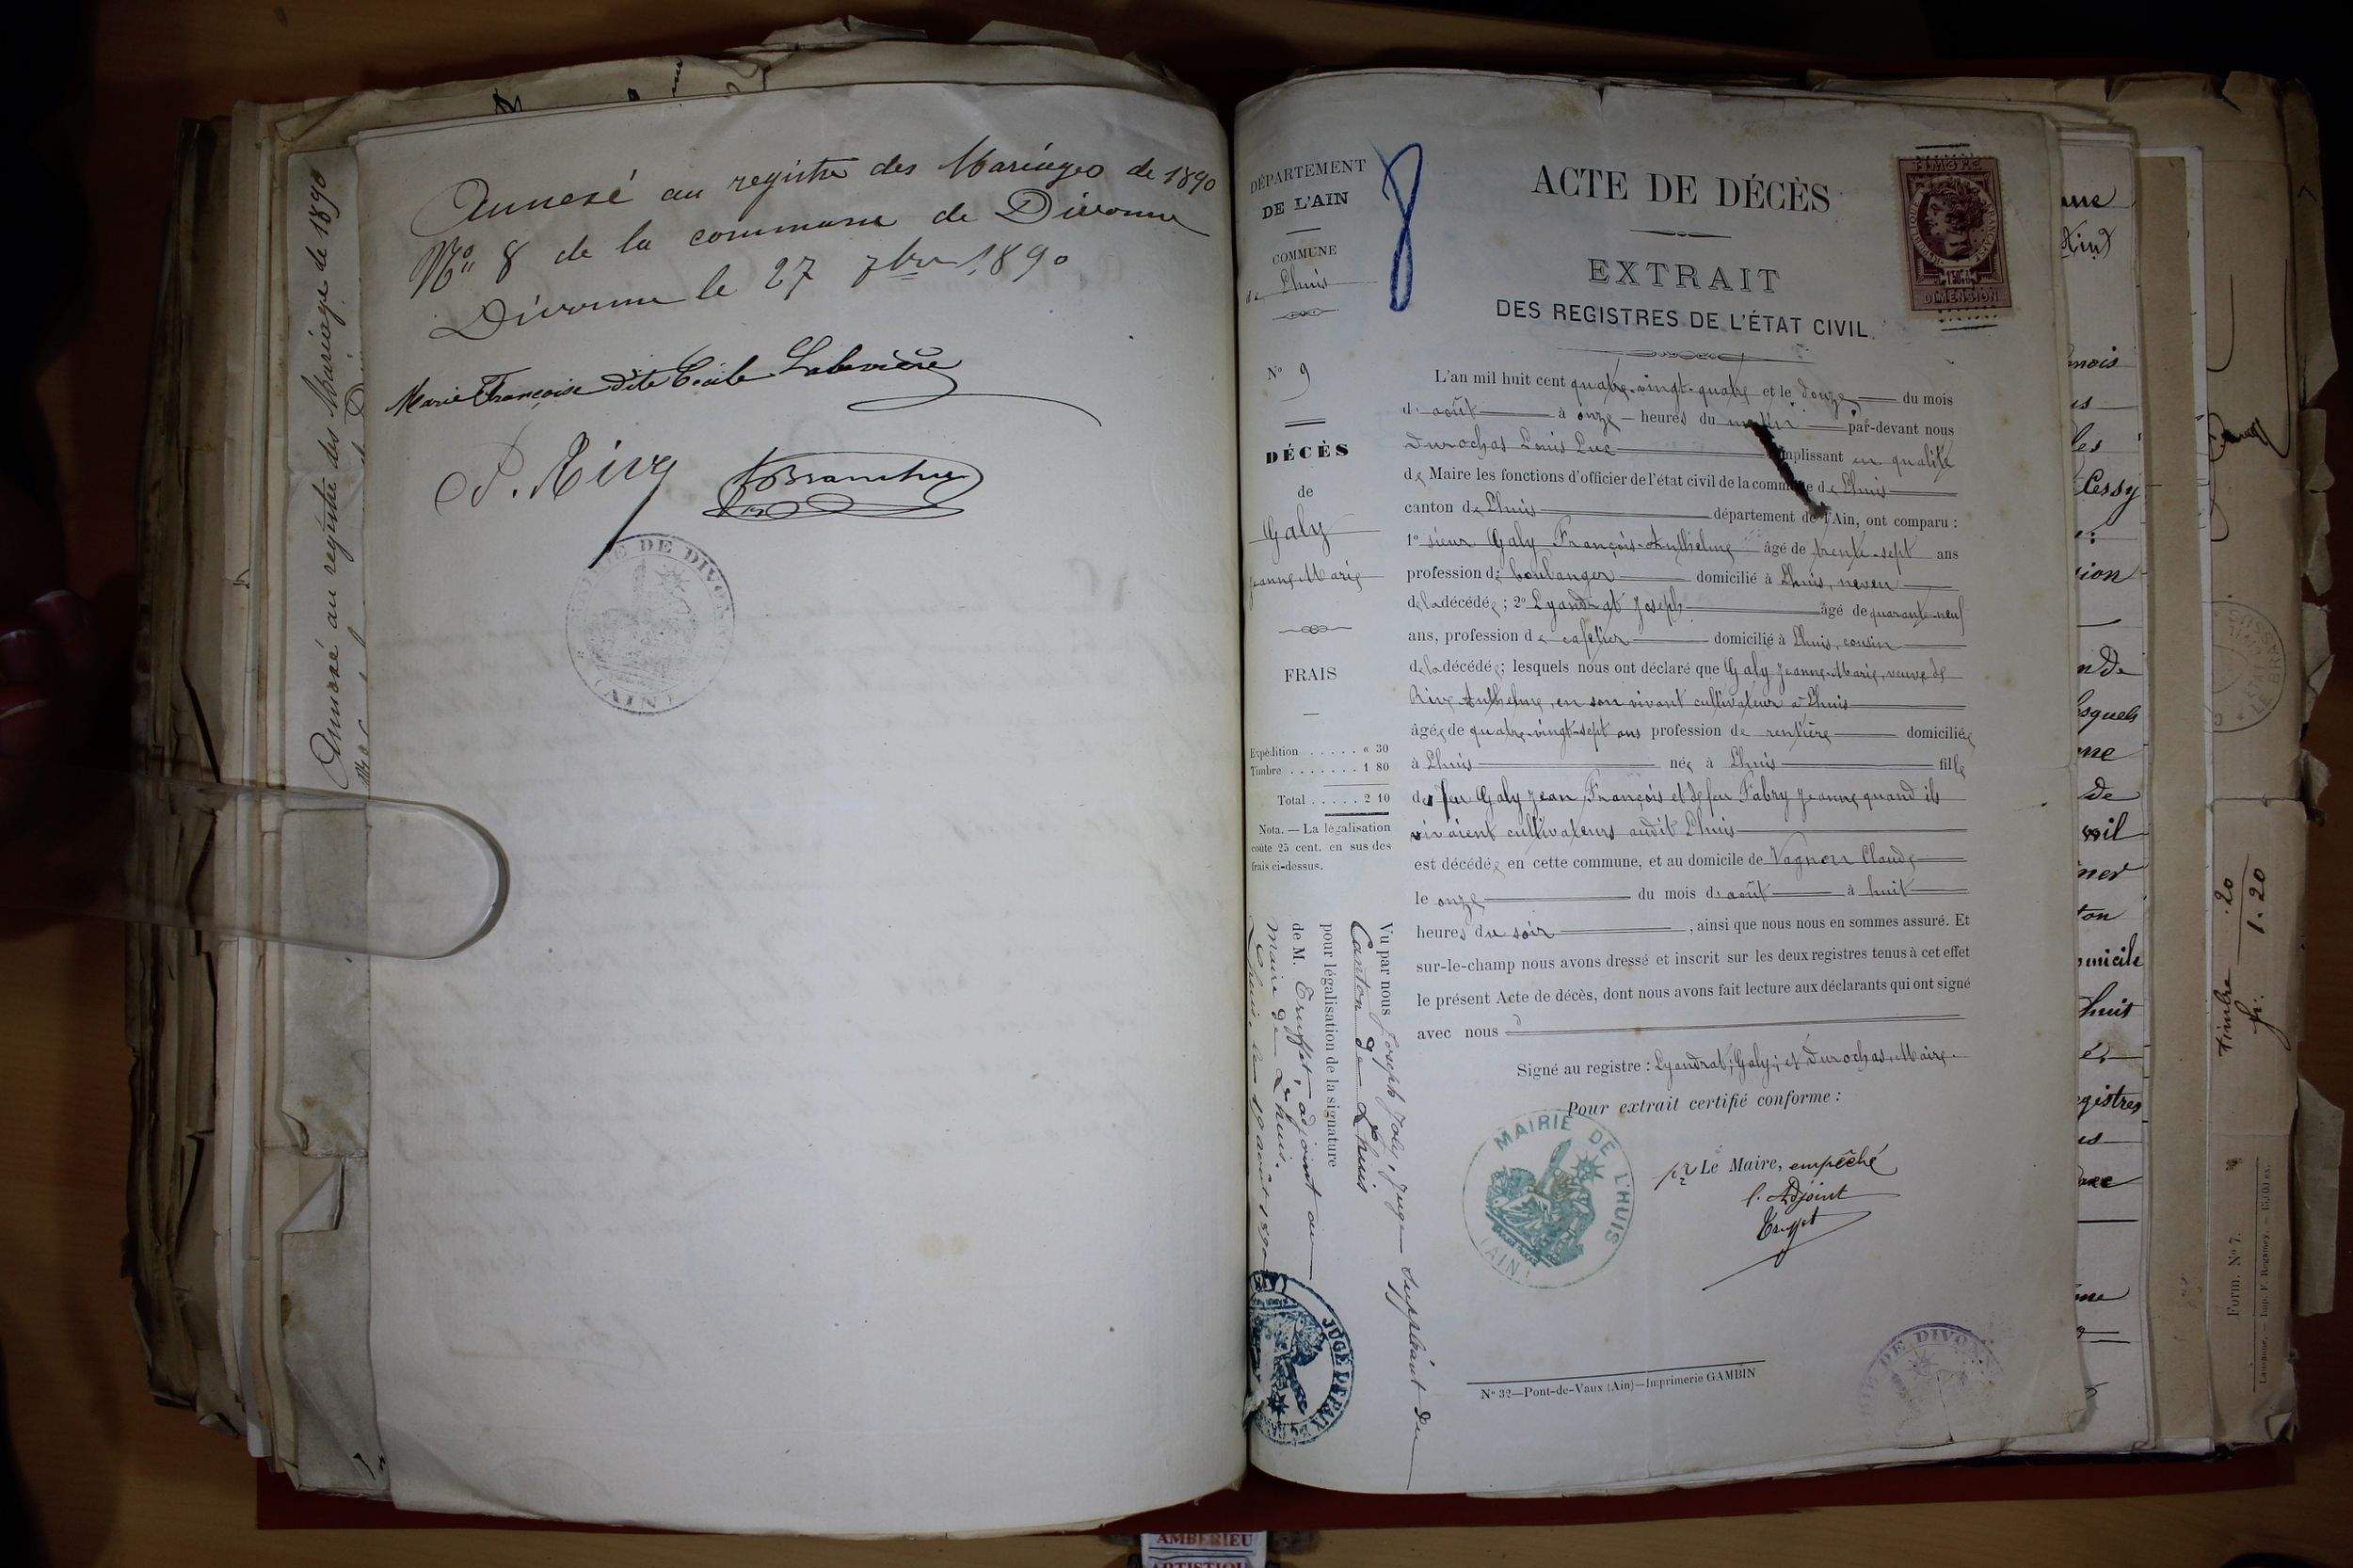 Annexé au registre des Mariages de 1890
Nº 8 de la commune de Divonne
Divonne le 27 7bre 1890
Marie Françoise dite Cécile Labevière
P. Rive
MAIRIE DE DIVONNE
(AIN)
Annexé au registre des Mariages de 1890
DÉPARTEMENT
DE L'AIN
COMMUNE
de Lhuis
Nº 9
DÉCÈS
de
Galy
Jeanne Marie
FRAIS
Expédition . . . . . « 30
Timbre . . . . . . . 1 80
Total . . . . . 2 10
Nota. — La légalisation
coûte 25 cent. en sus des
frais ci-dessus.
Vu par nous Joseph Joly, Juge Suppléant du
Canton de Lhuis
pour légalisation de la signature
de M. Truffet, adjoint au
Maire de Lhuis.
Lhuis, le 19 août 1890
JUGE DE PAIX
8
ACTE DE DÉCÈS
EXTRAIT
DES REGISTRES DE L'ÉTAT CIVIL
RÉPUBLIQUE FRANÇAISE
DIMENSION
L'an mil huit cent quatre-vingt-quatre et le douze du mois
d'août à onze heures du matin par-devant nous
Durochas Louis Luc remplissant en qualité
de Maire les fonctions d'officier de l'état civil de la commune de Lhuis
canton de Lhuis département de l'Ain, ont comparu :
1º sieur Galy François-Anthelme âgé de trente-sept ans
profession de boulanger domicilié à Lhuis, neveu
de la décédée ; 2º Lyandrat Joseph âgé de quarante-neuf
ans, profession de cafetier domicilié à Lhuis, cousin
de la décédée ; lesquels nous ont déclaré que Galy Jeanne-Marie, veuve de
Rive Anthelme, en son vivant cultivateur à Lhuis
âgée de quatre-vingt-sept ans profession de rentière domiciliée
à Lhuis née à Lhuis fille
de feu Galy Jean François et de feu Fabry Jeanne quand ils
vivaient cultivateurs audit Lhuis
est décédée en cette commune, et au domicile de Vagnon Claude
le onze du mois d'août à huit
heures du soir, ainsi que nous nous en sommes assuré. Et
sur-le-champ nous avons dressé et inscrit sur les deux registres tenus à cet effet
le présent Acte de décès, dont nous avons fait lecture aux déclarants qui ont signé
avec nous
Signé au registre : Lyandrat ; Galy ; et Durochas, Maire.
Pour extrait certifié conforme :
pr Le Maire, empêché
l'Adjoint
Truffet
MAIRIE DE L'HUIS
(AIN)
Nº 32—Pont-de-Vaux (Ain)—Imprimerie GAMBIN
DE DIVONNE
Cessy
esquels
de
domicile
huit
registres
Timbre .20
fr. 1.20
Form. Nº 7.
AMBERIEU